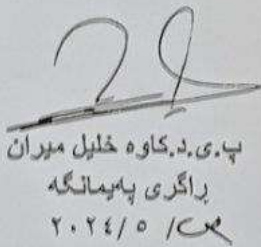 پ.ی.د.کاوە خلیل میران
ڕاگری پەیمانگە
٢٠٢٤/٥ /